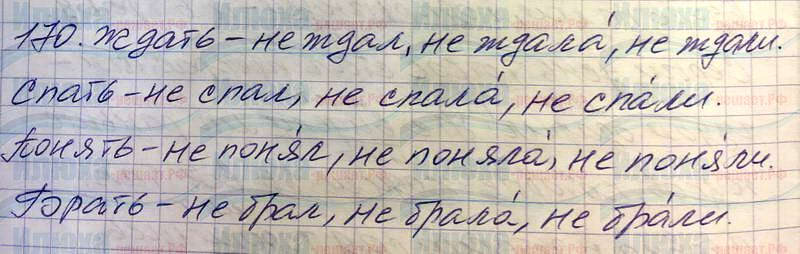 170. Ждать – не ждал, не ждала́, не ждали.
Спать – не спал, не спала́, не спа́ли.
Понять – не поня́л, не поняла́, не поня́ли.
Брать – не брал, не брала́, не бра́ли.